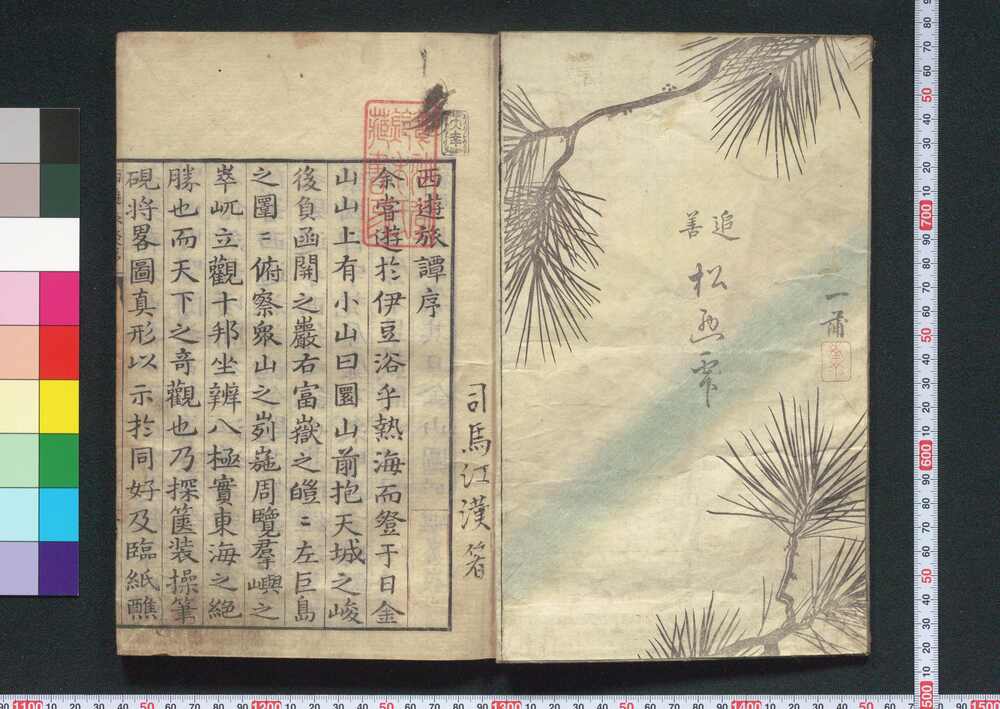 追善
松
一
西遊旅譚序
司馬江漢著
余嘗遊於伊豆浴乎熱海而登于日金
山山上有小山曰圜山前抱天城之峻
後負函關之巖右富嶽之皚〻左巨島
之圍〻俯察衆山之周覽羣嶼之
崒屼立觀十邦坐辨八極實東海之絶
勝也而天下之奇觀也乃探篋装操筆
硯将畧圖真形以示於同好及臨紙醮